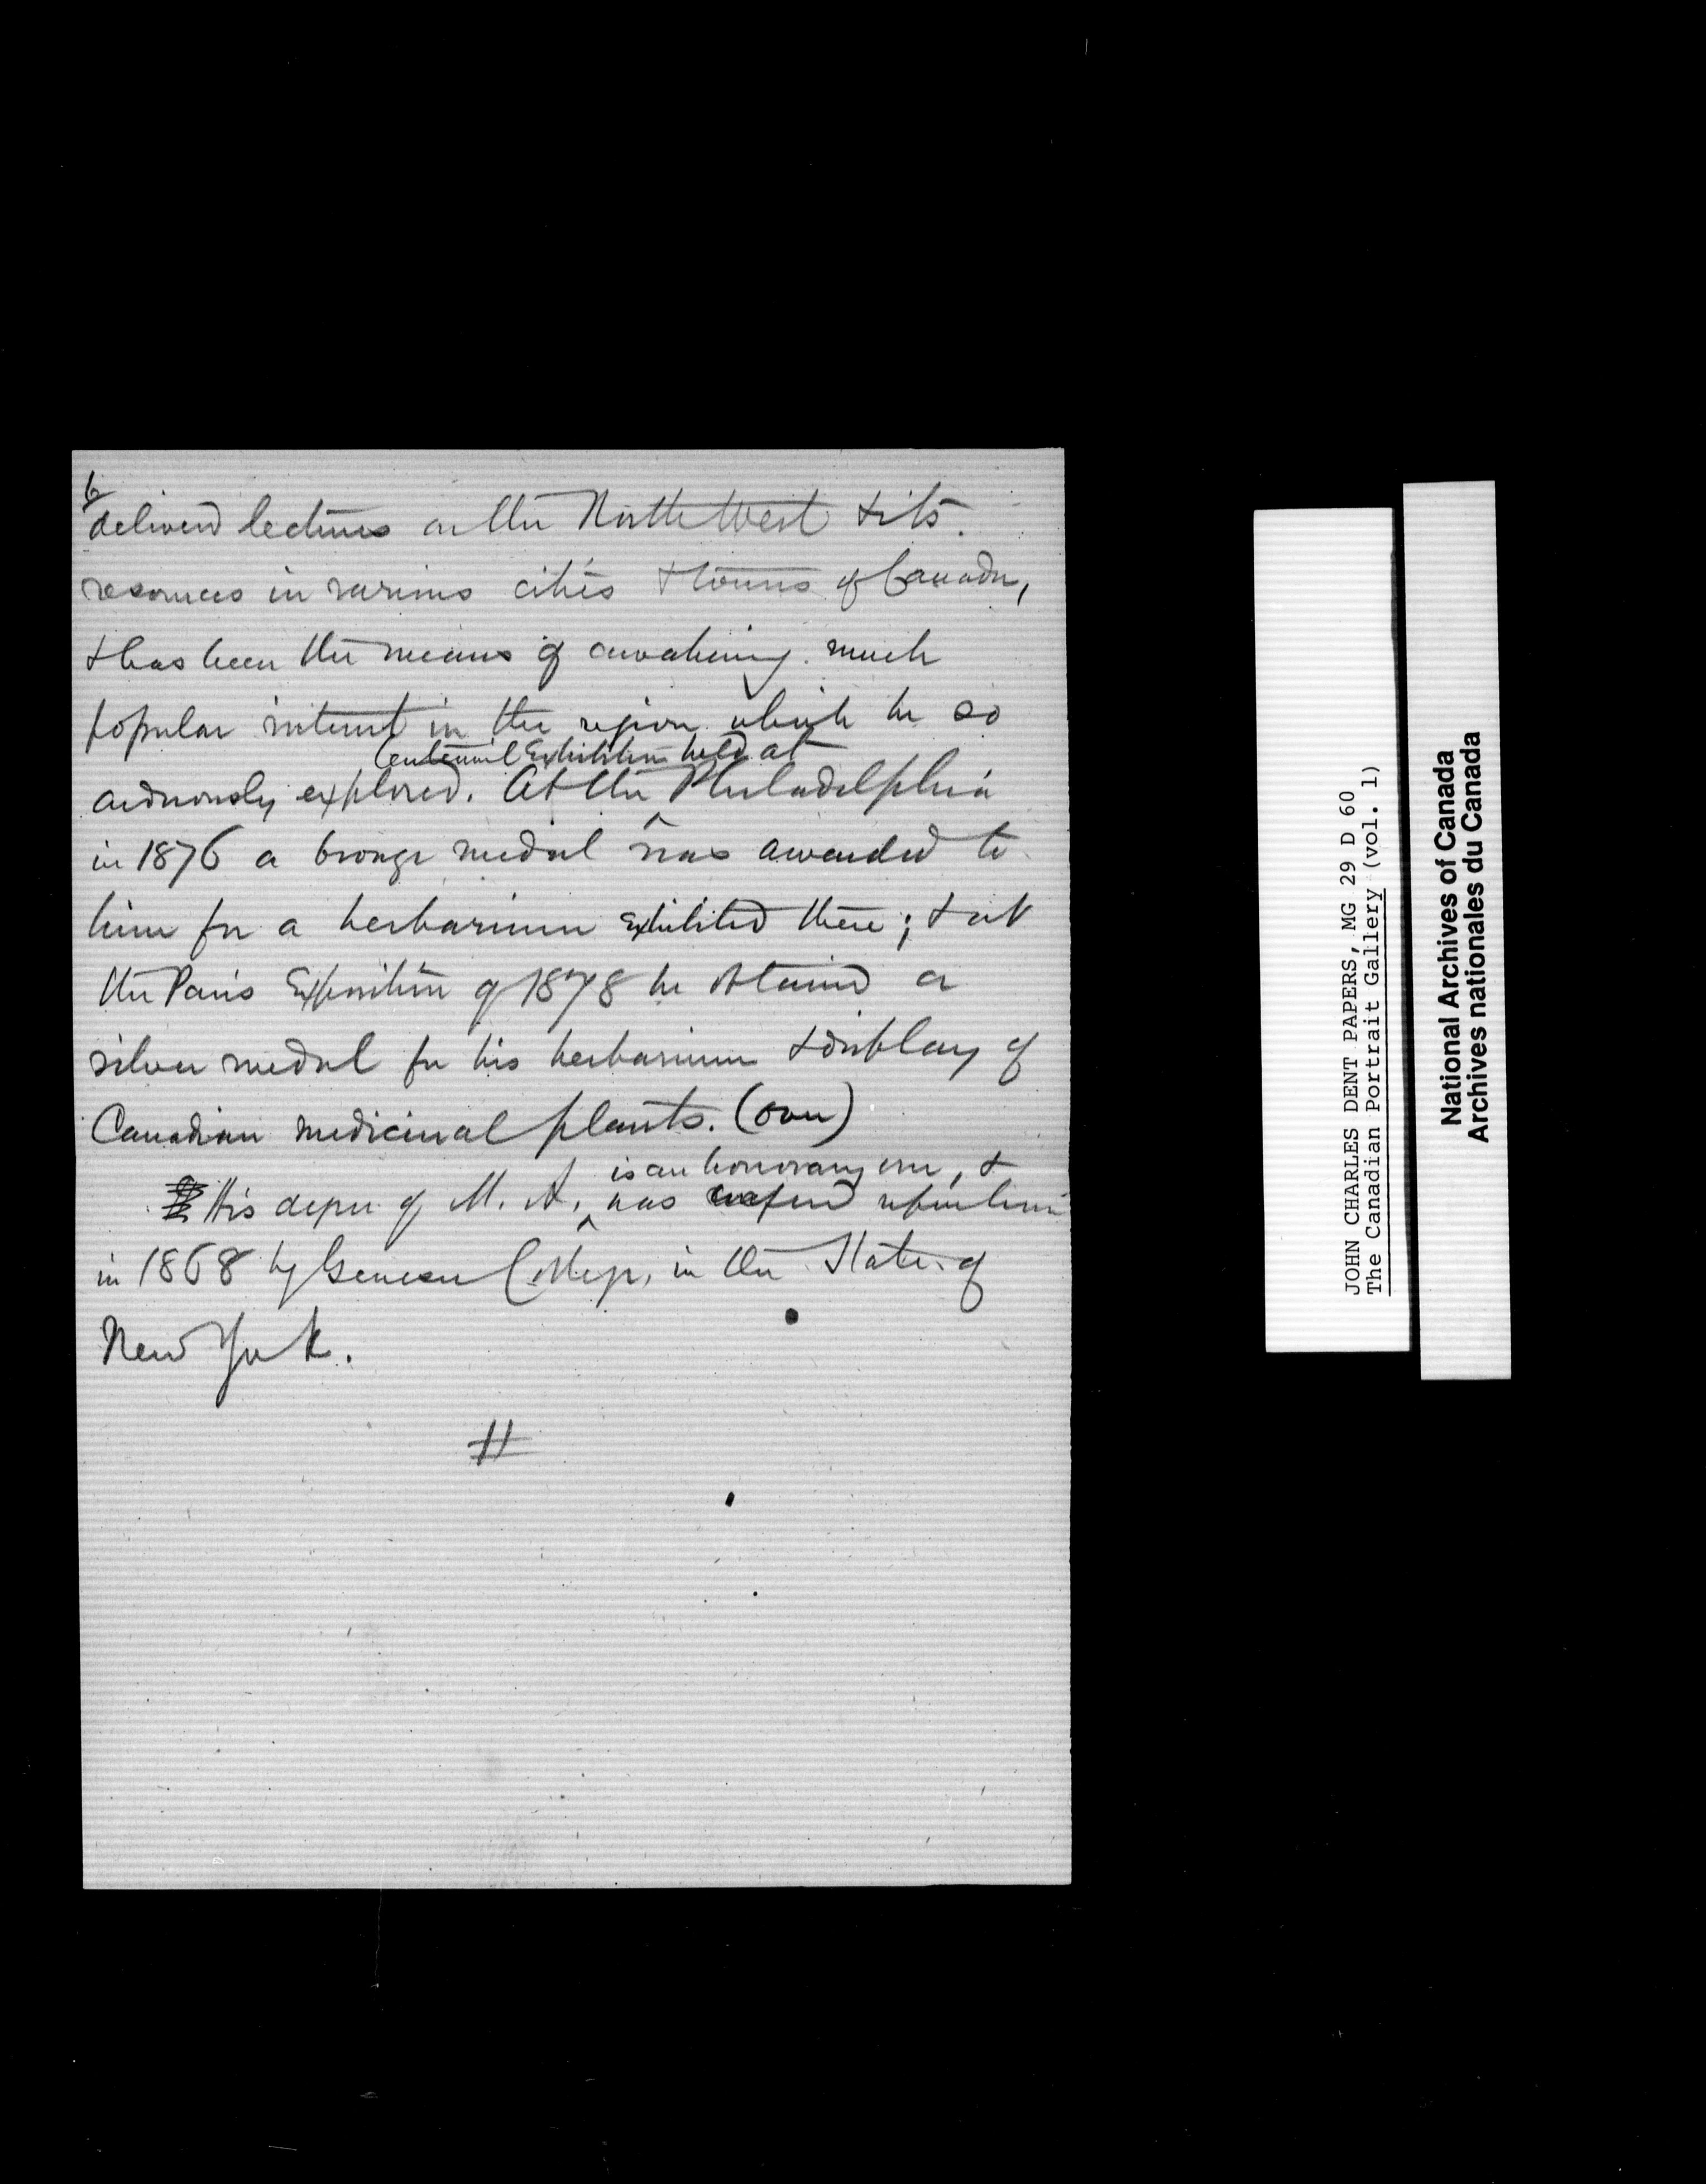 6
delivered lectures on the North West & its
resources in various cities & towns of Canada,
& has been the means of awakening much
popular interest in the region which he so
Centennial Exhibition held at
arduously explored. At the ^ Philadelphia
in 1876 a bronze medal was awarded to
him for a herbarium exhibited there; & at
the Paris Exposition of 1878 he obtained a
silver medal for his herbarium & display of
Canadian medicinal plants. (over)
is an honorary one, &
His degree of M. A. ^ was conferred upon him
in 1868 by Genesee College, in the State of
New York.
#
JOHN CHARLES DENT PAPERS, MG 29 D 60
The Canadian Portrait Gallery (vol. 1)
National Archives of Canada
Archives nationales du Canada